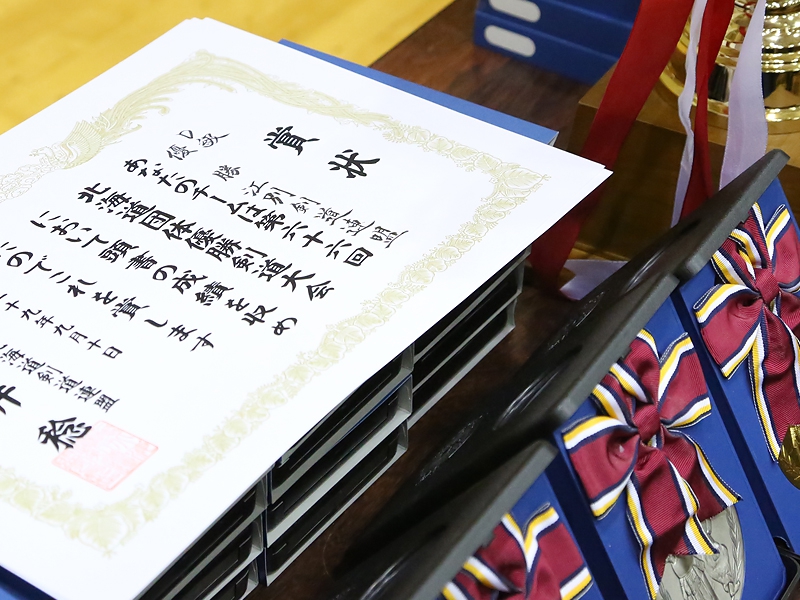 賞状
江別剣道連盟
優勝
あなたのチームは第六十六回
北海道団体優勝剣道大会
において頭書の成績を収め
のでこれを賞します
十九年九月十日
海道剣道連盟
稔